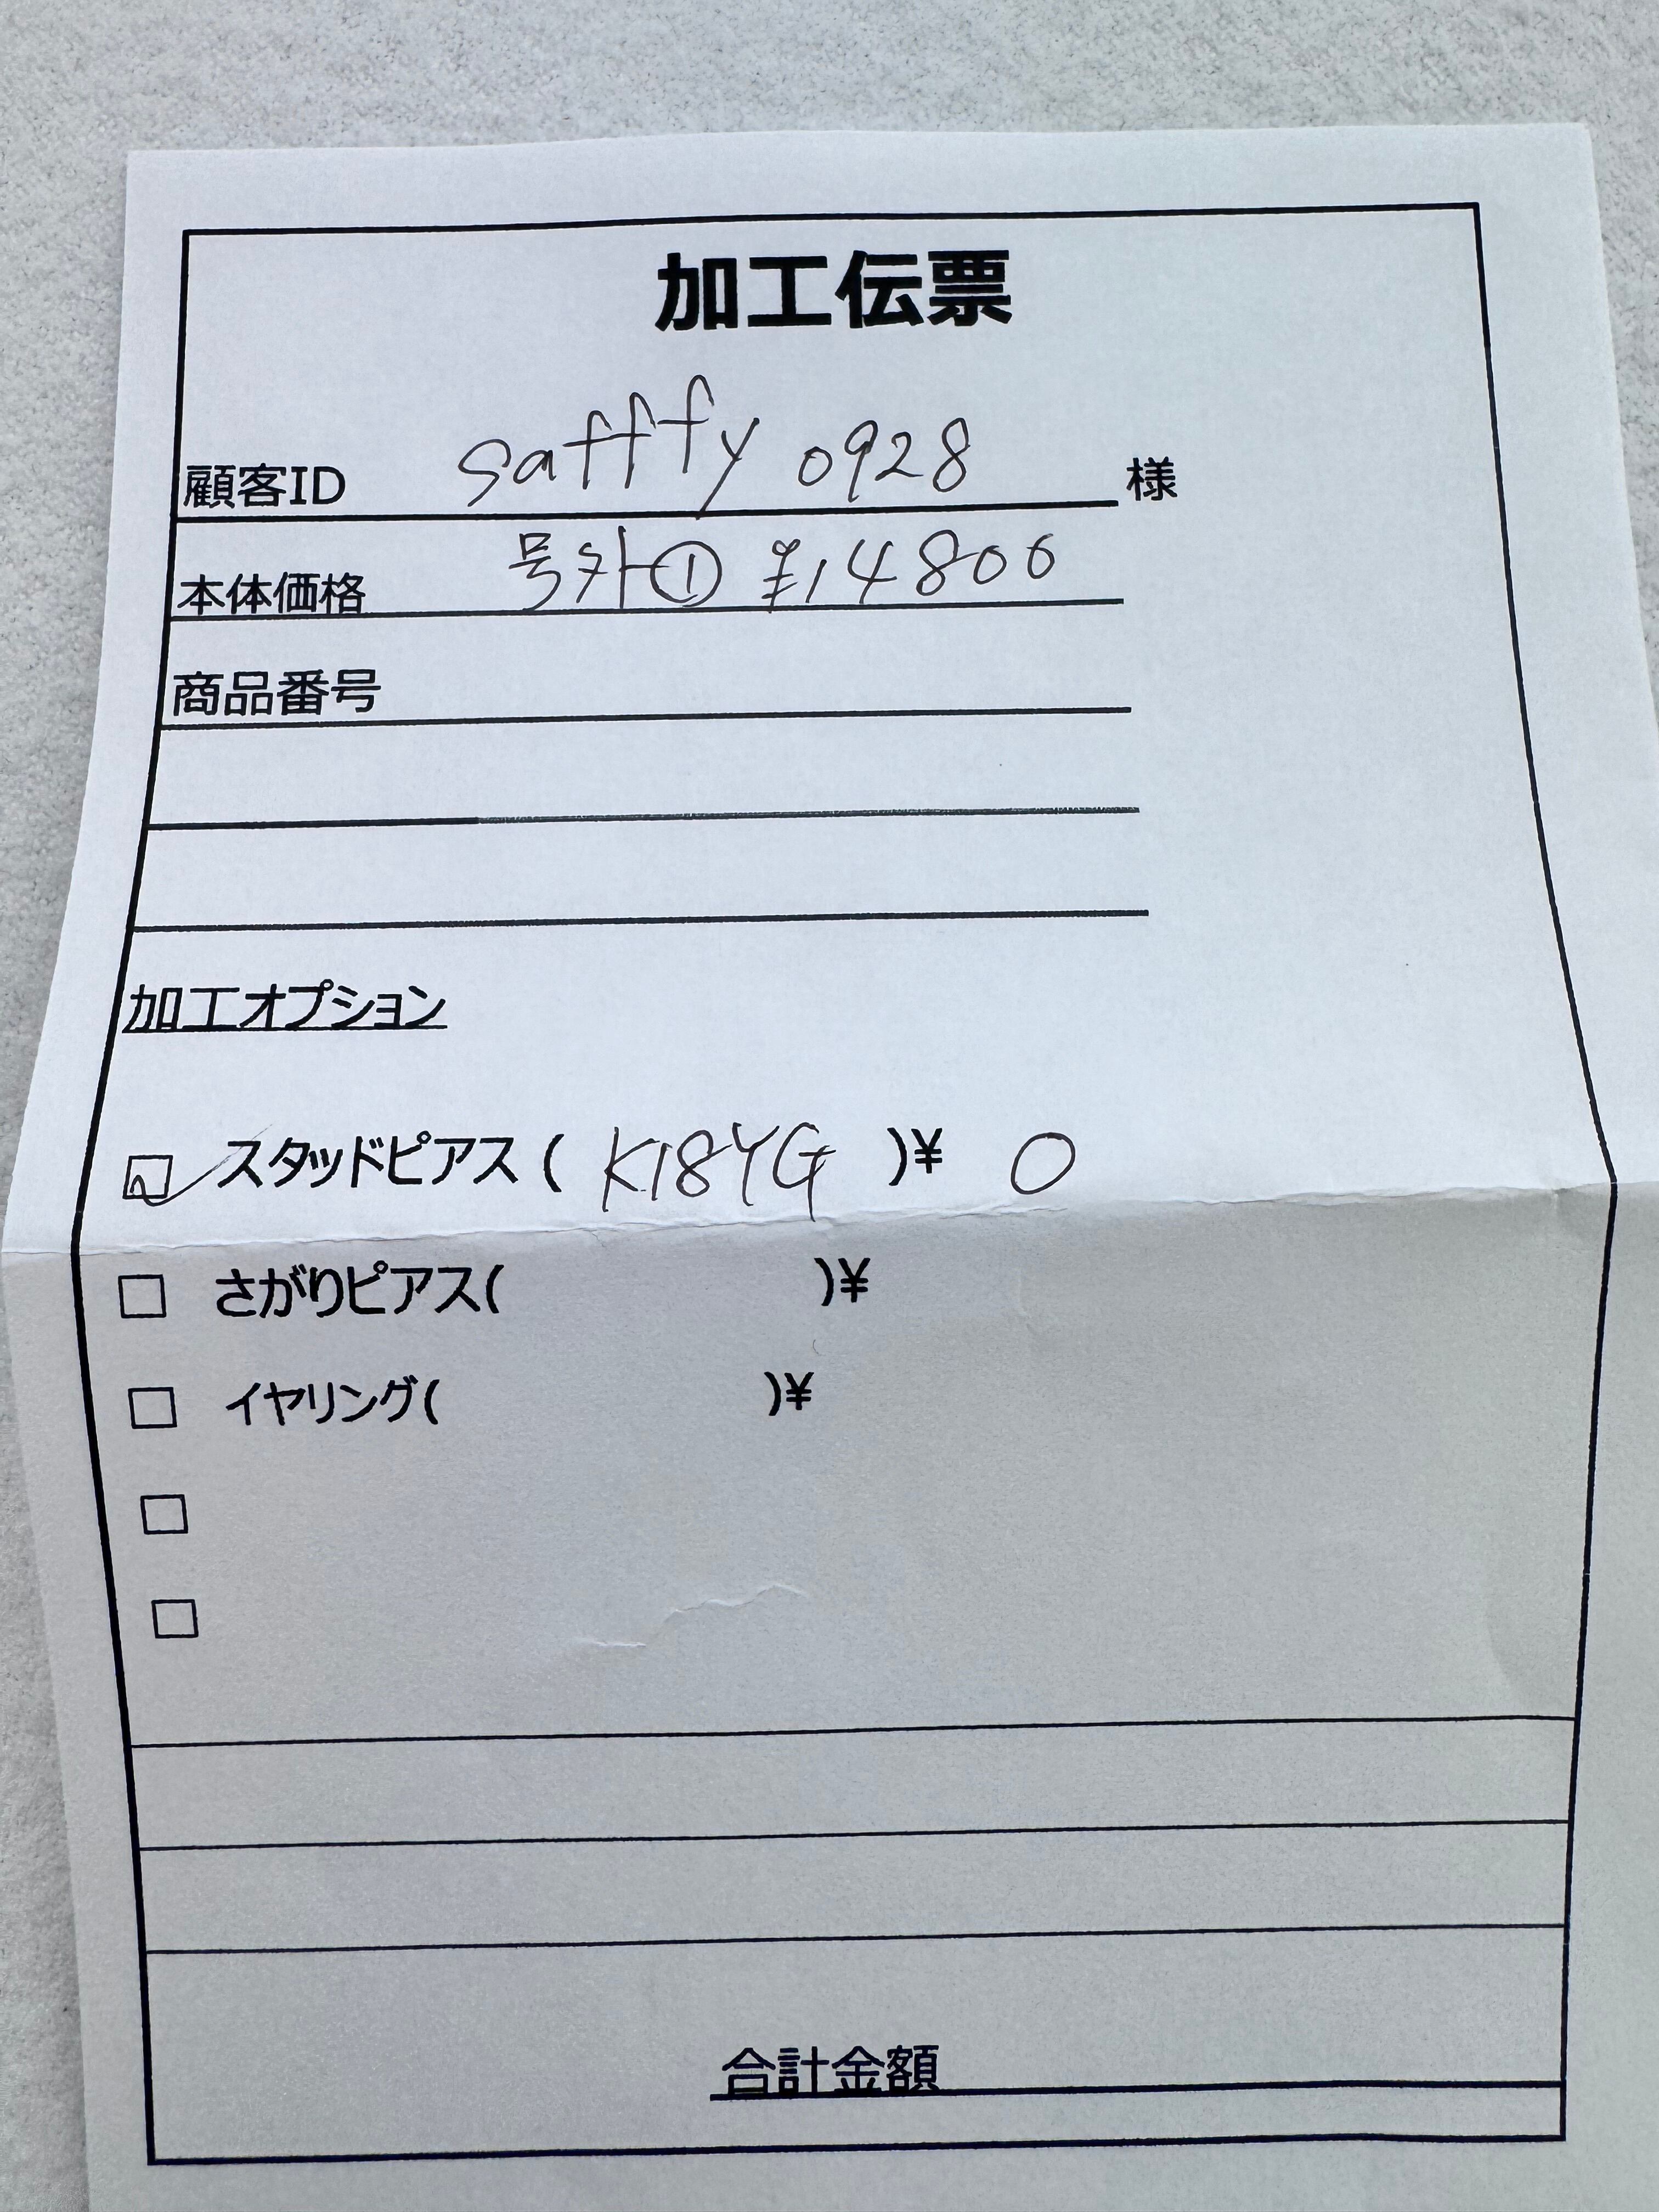 加工伝票
顧客ID safffy 0928 様
本体価格 号外① ¥14800
商品番号
加工オプション
☑ スタッドピアス( K18YG )¥ 0
□ さがりピアス( )¥
□ イヤリング( )¥
□
□
合計金額